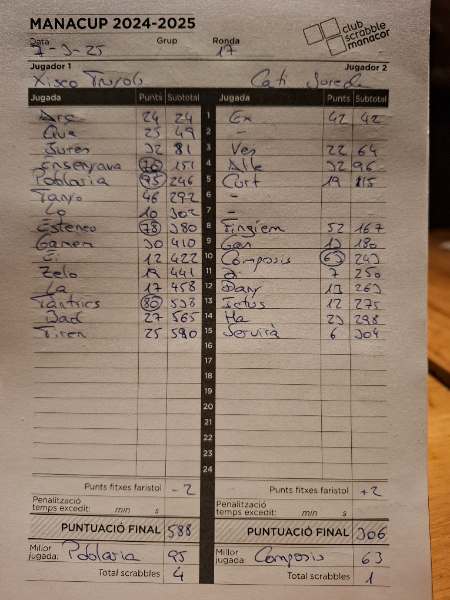 MANACUP 2024-2025
club scrabble manacor
Data Grup Ronda
7-3-25 17
Jugador 1 Jugador 2
Xisco Cati
Jugada Punts Subtotal Jugada Punts Subtotal
Arç 24 24 1 Ex 42 42
Que 25 49 2 -
Jures 32 81 3 Ves 22 64
Ensenyava 70 151 4 Alle 32 96
Poblaria 95 246 5 Cort 19 115
Tanyo 46 292 6 -
Lo 10 302 7 -
Esteneo 78 380 8 Fingíem 52 167
Ganem 30 410 9 Gan 13 180
Ei 12 422 10 Composis 63 243
Zelo 19 441 11 7 250
La 17 458 12 Dany 13 263
Tàntrics 80 538 13 Ictus 12 275
Bad 27 565 14 Ha 23 298
Tiren 25 590 15 Servirà 6 304
16
17
18
19
20
21
22
23
24
Punts fitxes faristol -2 Punts fitxes faristol +2
Penalització temps excedit: min s Penalització temps excedit: min s
PUNTUACIÓ FINAL 588 PUNTUACIÓ FINAL 306
Millor jugada: Poblaria 95 Millor jugada: Composis 63
Total scrabbles 4 Total scrabbles 1